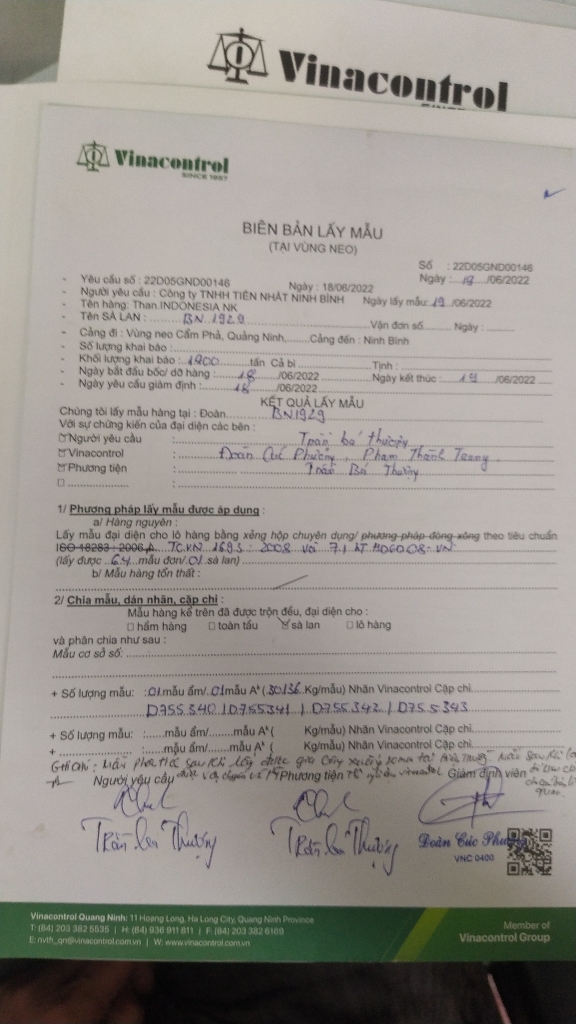 Vinacontrol
Vinacontrol
SINCE 1957
BIÊN BẢN LẤY MẪU
(TẠI VÙNG NEO)
Số : 22D05GND00146
- Yêu cầu số : 22D05GND00146 Ngày : 18/06/2022 Ngày : 18 /06/2022
- Người yêu cầu : Công ty TNHH TIẾN NHẤT NINH BÌNH Ngày lấy mẫu: 19 /06/2022
- Tên hàng: Than INDONESIA NK
- Tên SÀ LAN : BN 1929 Vận đơn số Ngày :
- Cảng đi : Vùng neo Cẩm Phả, Quảng Ninh, Cảng đến : Ninh Bình
- Số lượng khai báo :
- Khối lượng khai báo : 1900 tấn Cả bì Tịnh :
- Ngày bắt đầu bốc/ dỡ hàng : 18 /06/2022 Ngày kết thúc : 19 /06/2022
- Ngày yêu cầu giám định : 18 /06/2022
KẾT QUẢ LẤY MẪU
Chúng tôi lấy mẫu hàng tại : Đoàn BN1929
Với sự chứng kiến của đại diện các bên :
Người yêu cầu : Trần bá thưởng
Vinacontrol : Đoàn Cúc Phương, Phạm Thành Trung
Phương tiện : Trần Bá Thưởng
1/ Phương pháp lấy mẫu được áp dụng :
a/ Hàng nguyên :
Lấy mẫu đại diện cho lô hàng bằng xẻng hộp chuyên dụng/ phương pháp đông xông theo tiêu chuẩn
ISO 18283 : 2006 TCVN 1693 : 2008 và 7.1 KT HDGO 08-VN
(lấy được 64 mẫu đơn/ 01 sà lan)
b/ Mẫu hàng tổn thất :
2/ Chia mẫu, dán nhãn, cặp chì :
Mẫu hàng kể trên đã được trộn đều, đại diện cho :
hầm hàng toàn tàu sà lan lô hàng
và phân chia như sau :
Mẫu cơ sở số:
+ Số lượng mẫu: : 01 mẫu ẩm/ 01 mẫu A* ( 30/36 Kg/mẫu) Nhãn Vinacontrol Cặp chì
D755340 / D755341 / D755342 / D755343
+ Số lượng mẫu: : mẫu ẩm/ mẫu A* ( Kg/mẫu) Nhãn Vinacontrol Cặp chì
+ : mẫu ẩm/ mẫu A* ( Kg/mẫu) Nhãn Vinacontrol Cặp chì
Ghi chú : Mẫu sau khi lấy được
Người yêu cầu Phương tiện Giám định viên
Trần bá Thưởng Trần bá Thưởng Đoàn Cúc Phương
VNC 0400
Vinacontrol Quang Ninh: 11 Hoang Long, Ha Long City, Quang Ninh Province
T: (84) 203 382 5535 | H: (84) 936 911 811 | F: (84) 203 382 6169
E: nvth_qn@vinacontrol.com.vn | W: www.vinacontrol.com.vn
Member of
Vinacontrol Group